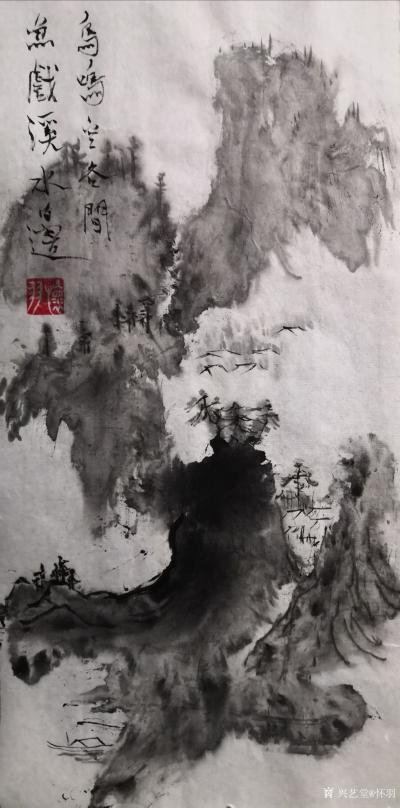 鳥鳴空谷間
魚戲溪水邊
懷羽
兴艺堂@怀羽